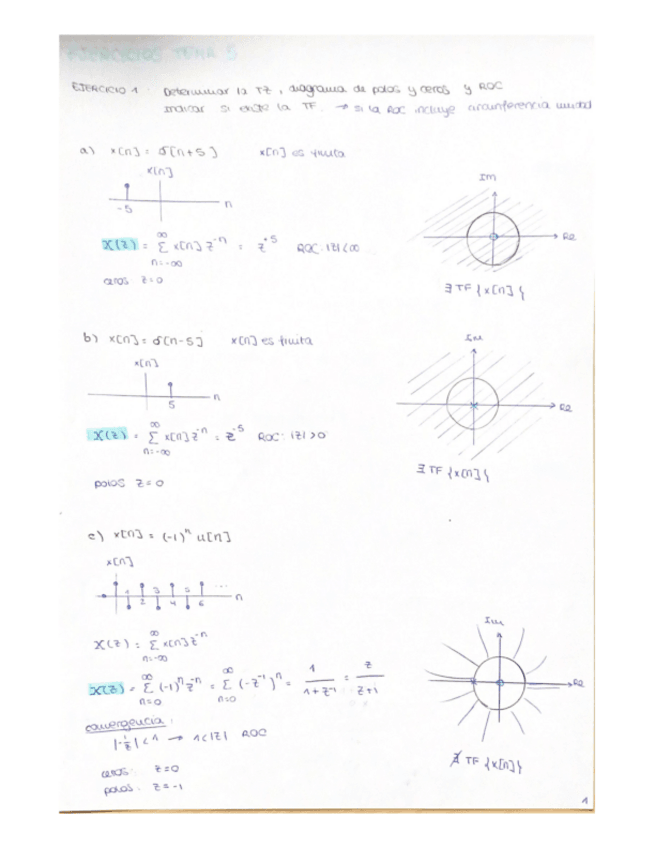 EJERCICIOS TEMA 5
EJERCICIO 1: Determinar la TZ, diagrama de polos y ceros y ROC
Indicar si existe la TF. → si la ROC incluye circunferencia unidad
a) x[n] = δ[n+5] x[n] es finita
x[n]
-5 n
X(z) = Σ x[n] z^-n = z^+5 ROC: |z| < ∞
n=-∞ ∞
ceros: z=0
Im
Re
∃ TF {x[n]}
b) x[n] = δ[n-5] x[n] es finita
x[n]
5 n
X(z) = Σ x[n] z^-n = z^-5 ROC: |z| > 0
n=-∞ ∞
polos z=0
Im
Re
∃ TF {x[n]}
c) x[n] = (-1)^n u[n]
x[n]
1 2 3 4 5 6 ... n
X(z) = Σ x[n] z^-n
n=-∞ ∞
X(z) = Σ (-1)^n z^-n = Σ (-z^-1)^n = 1/(1+z^-1) = z/(z+1)
n=0 ∞ n=0 ∞
convergencia:
|-1/z| < 1 → 1 < |z| ROC
ceros: z=0
polos: z=-1
Im
Re
∄ TF {x[n]}
1